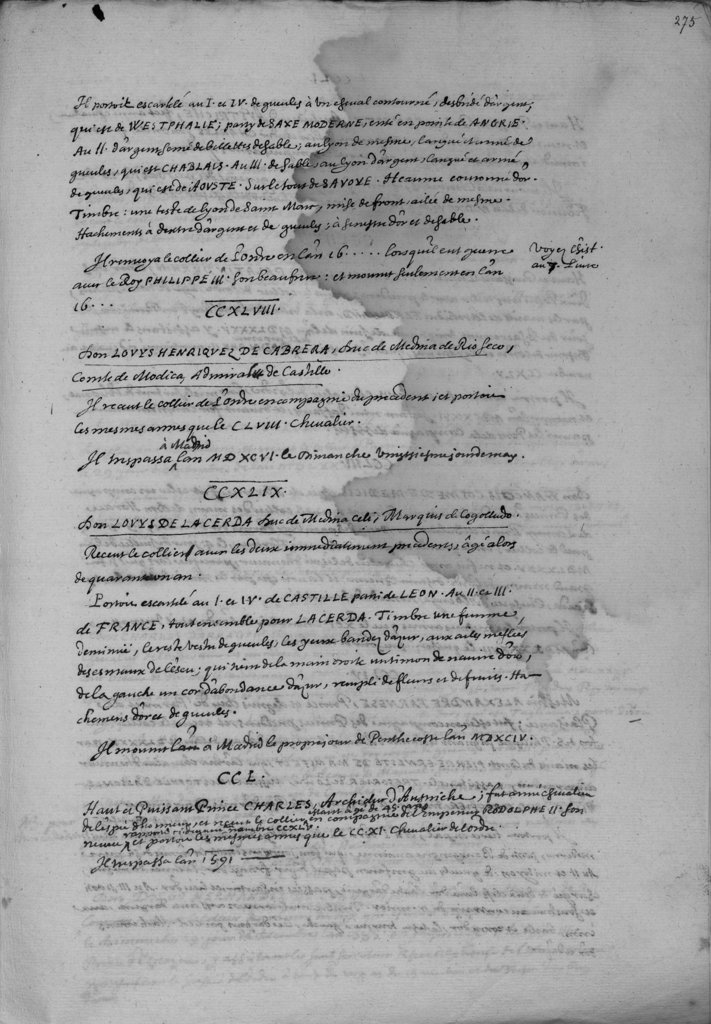 275
Il portoit escartelé au I. et IV. de gueules à un cheval contourné, desbridé d'argent,
qui est de WESTPHALIE; party de SAXE MODERNE, enté en pointe de ANGRIE.
Au II. d'argent semé de billettes de sable; au lyon de mesme, langué et armé de
gueules, qui est CHABLAIS. Au III. de sable, au lyon d'argent, langué et armé
de gueules, qui est de AOUSTE. Sur le tout de SAVOYE. Heaume couronné d'or.
Timbre: une teste de lyon de Saint Marc, mise de front, ailée de mesme.
Hachements à dextre d'argent et de gueules; à senestre d'or et de sable.
Il renvoya le collier de l'ordre en l'an 16..... lorsqu'il eut guerre
avec le Roy PHILIPPE III. son beau frere: et mourut seulement en l'an
16...
Voyez
au 7. Livre
CCXLVIII.
Don LOUYS HENRIQUEZ DE CABRERA, Duc de Medina de Rio seco,
Comte de Modica, Admiral de Castille.
Il receut le collier de l'ordre en compagnie du precedent; et portoit
les mesmes armes que le CLVIII. Chevalier.
Il trespassa à Madrid l'an MDXCVI. le dimanche vingtiesme jour de may.
CCXLIX.
Don LOUYS DE LA CERDA Duc de Medina Celi, Marquis de Cogolludo.
Receut le collier avec les deux immediatement precedents, âgé alors
de quarante un an.
Portoit escartelé au I. et IV. de CASTILLE parti de LEON. Au II. et III.
de FRANCE, tout ensemble pour LA CERDA. Timbre une femme,
, le reste vestu de gueules, les yeux bandez d'azur, aux ailes meslées
des esmaux de l'escu; qui tient de la main droite un timon de navire d'or,
de la gauche un cor d'abondance d'azur, rempli de fleurs et de fruits. Ha-
chemens d'or et de gueules.
Il mourut à Madrid le propre jour de Penthecoste l'an MDXCIV.
CCL.
Haut et Puissant Prince CHARLES, Archiduc d'Austriche; fut armé chevalier
de l'espée d'honneur, et receut le collier en compagnie de l'empereur RODOLPHE II. son
estant âgé de 45 ans
nepveu et portoit les mesmes armes que le CCXI. Chevalier de l'ordre.
Il trespassa l'an 1591